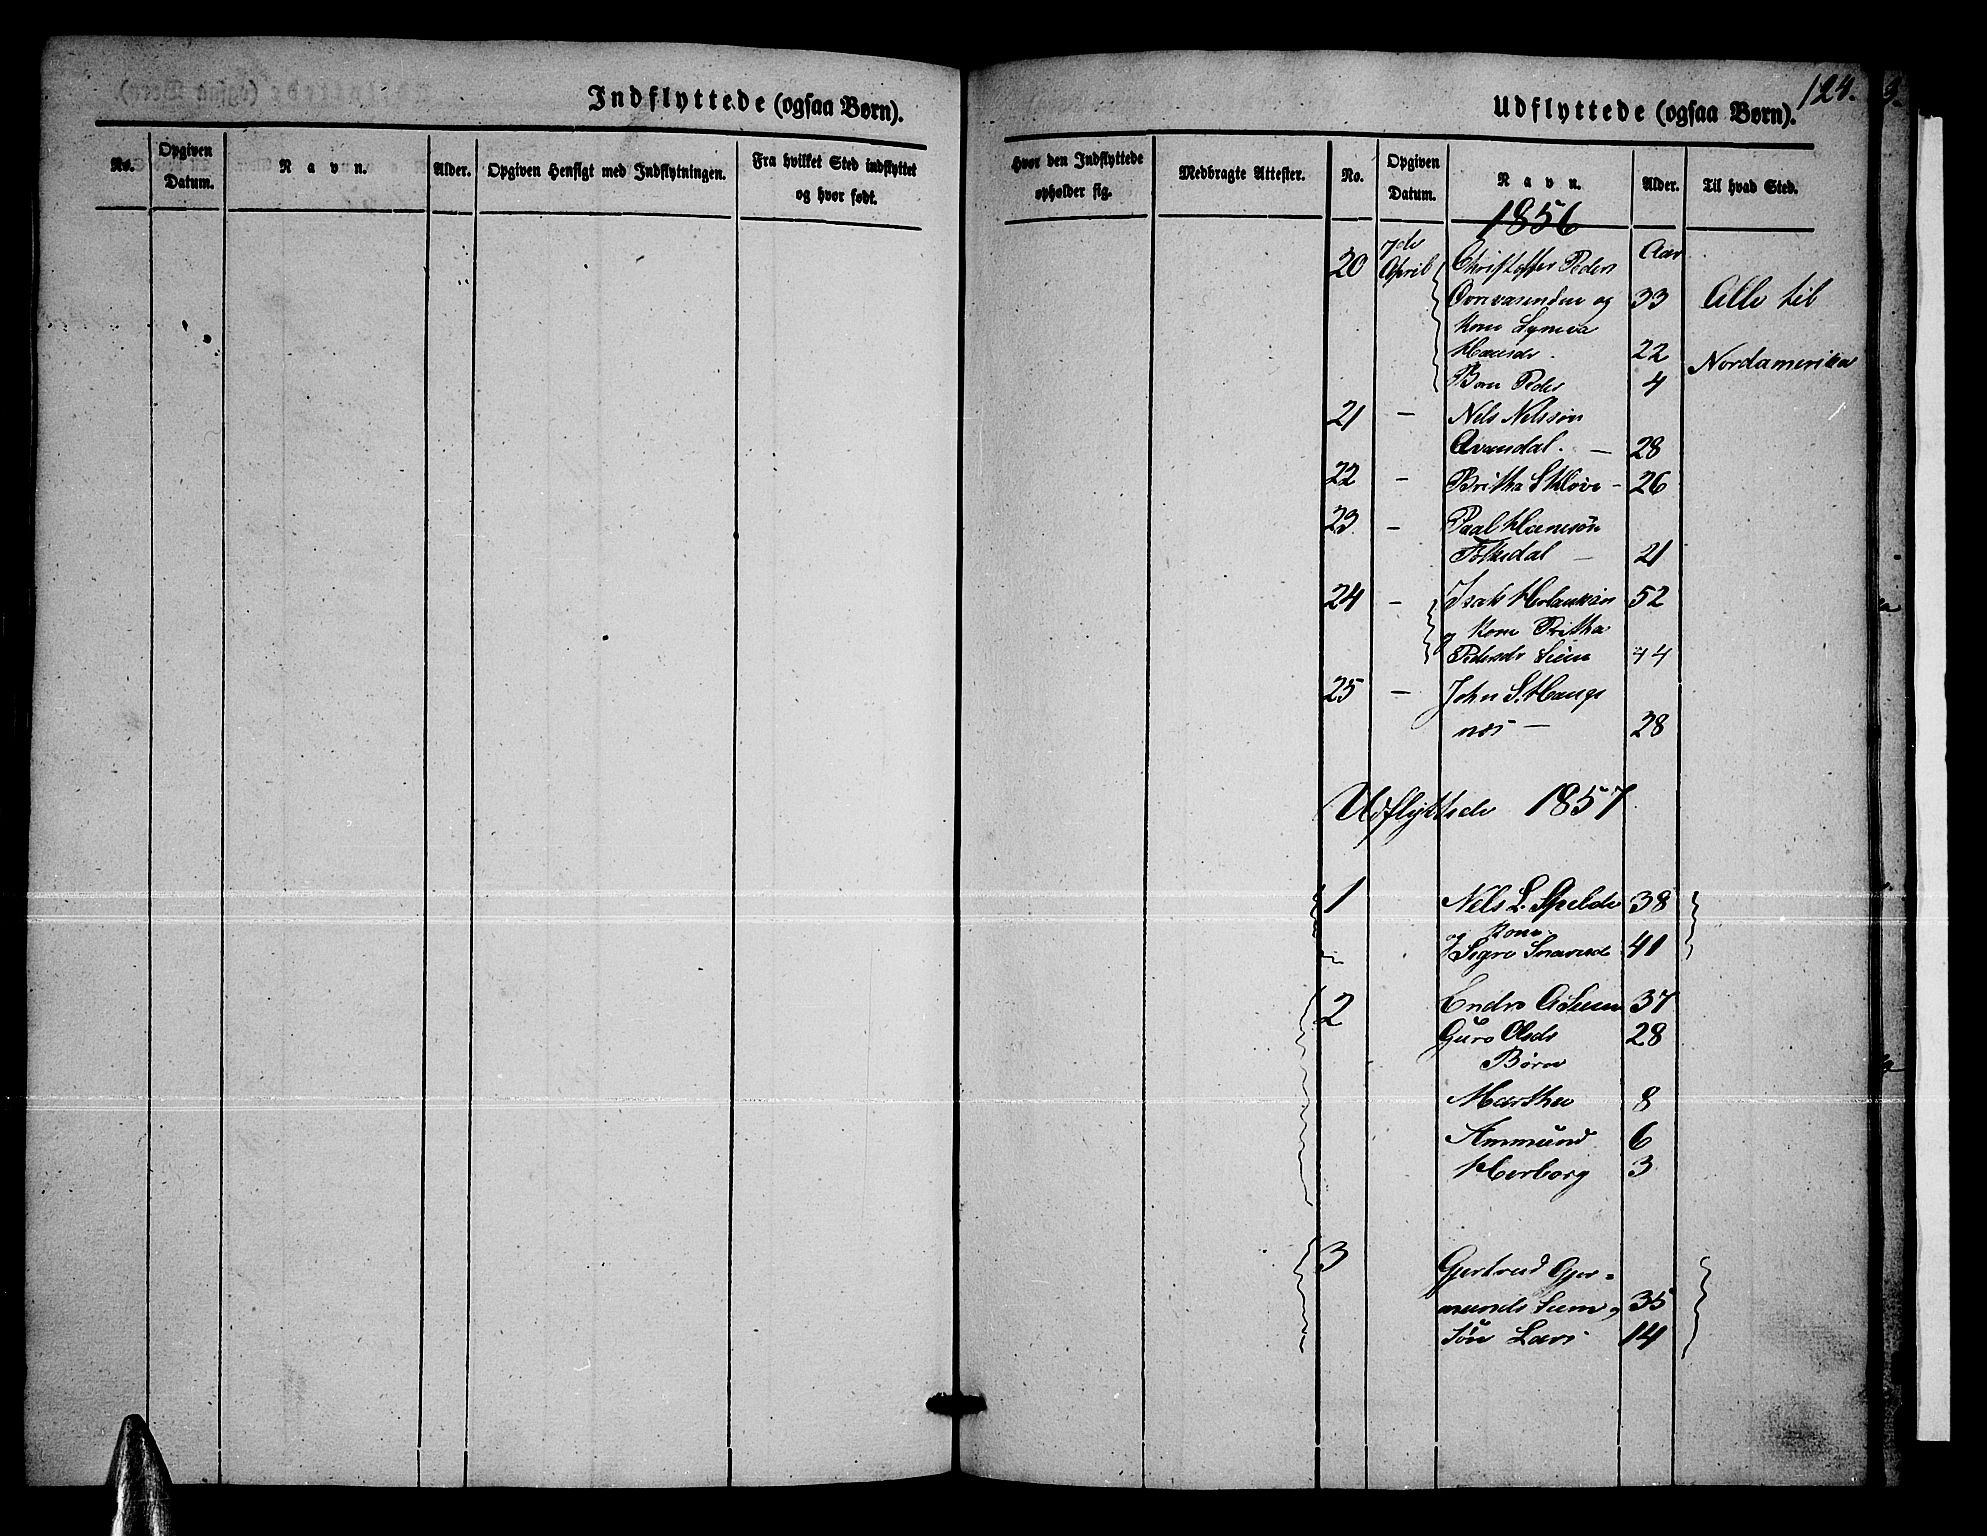 Indflyttede (ogsaa Børn).
No.
Opgiven Datum.
Navn.
Alder.
Opgiven Hensigt med Indflytningen.
Fra hvilket Sted indflyttet og hvor født.
124.
Udflyttede (ogsaa Børn).
Hvor den Indflyttede opholder sig.
Medbragte Attester.
No.
Opgiven Datum.
Navn.
Alder.
Til hvad Sted.
1856
20 7de April Christoffer Peders Aar
og 33 Alle til
Kone
22 Nordamerika
Barn Peder 4
21 — Nels Nelsson
28
22 — Britha 26
23 — Paal Hansøn
Folkedal — 21
24 — Isak 52
og Kone Britha
Pedersdr 44
25 — John S. Haugs
næs — 28
Udflyttede 1857
1 Nels L. Spelde 38
og Kone
Sigro 41
2 Endre 37
Guro Olsdr 28
Børn
Martha 8
Ammund 6
Herborg 3
3 Gjertrud Gjer=
munds 35
Søn Lars 14